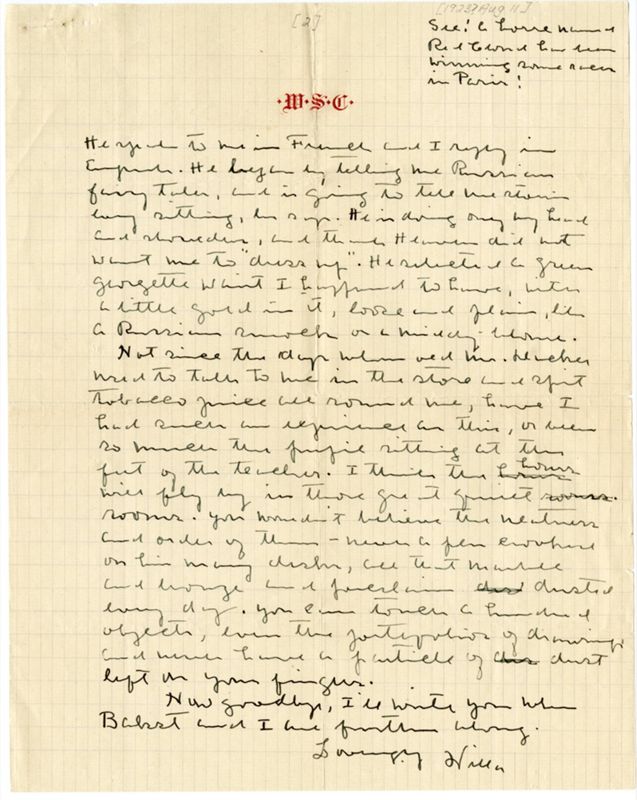 [1923? Aug 11]
[2]
See! A horse named
Red Cloud has been
winning some races
in Paris!
·W·S·C·
He speaks to me in French and I reply in
English. He began by telling me Russian
fairy tales, and is going to tell me stories
every sitting, he says. He is doing only my head
and shoulders, and thank Heaven did not
want me to "dress up". He selected a green
georgette waist I happened to have, with
a little gold in it, loose and plain, like
a Russian smock or a middy-blouse.
Not since the days when old Mr. Ducker
used to talk to me in the store and spit
tobacco juice all round me, have I
had such an experience as this, or been
so much the pupil sitting at the
feet of the teacher. I think the hours
will fly by in those great quiet rooms.
rooms. You wouldn't believe the neatness
and order of them - never a pen crooked
on his many desks, all that marble
and bronze and porcelain dus dusted
every day. You can touch a hundred
objects, even the portfolios of drawings
and never have a particle of dus dust
left on your fingers.
Now goodbye, I'll write you when
Bakst and I are further along.
Lovingly Willa